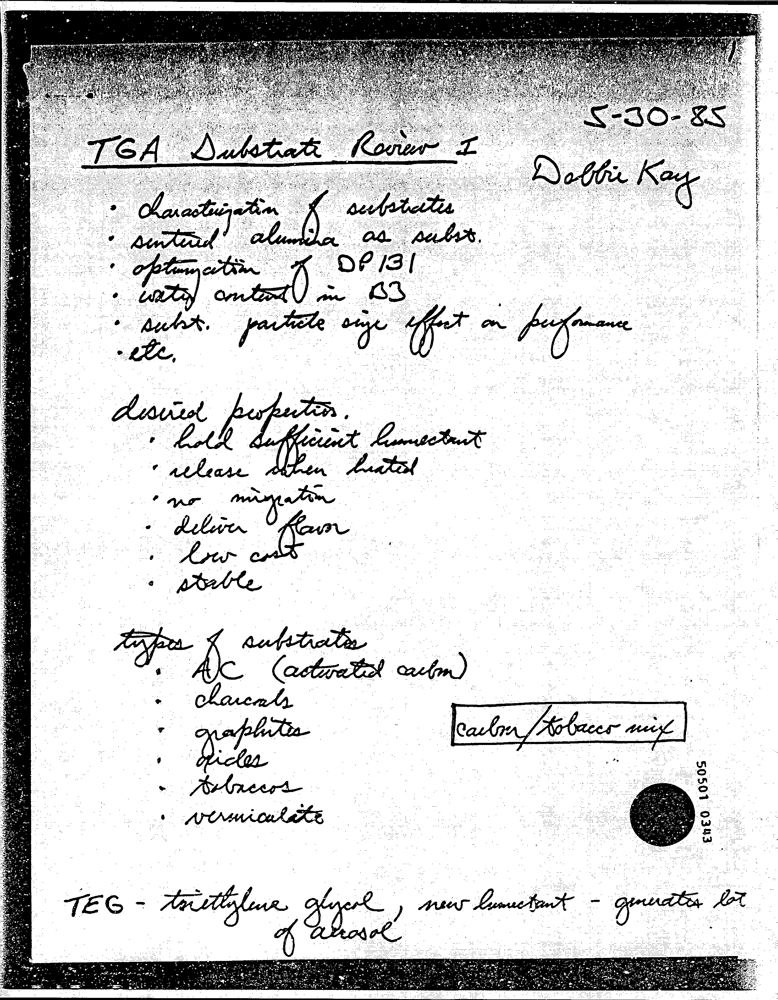 1
5-30-85
TGA Substrate Review I
Debbie Kay
· characterization of substrates
· sintered alumina as subst.
· optimization of DP 131
· water content in B3
· subst. particle size effect on performance
· etc.
desired properties.
· hold sufficient humectant
· release when heated
· no migration
· deliver flavor
· low cost
· stable
types of substrates
· A/C (activated carbon)
· charcoals
· graphites
carbon/tobacco mix
· oxides
· tobaccos
· vermiculite
50501 0343
TEG - triethylene glycol, new humectant - generates lot
of aerosol